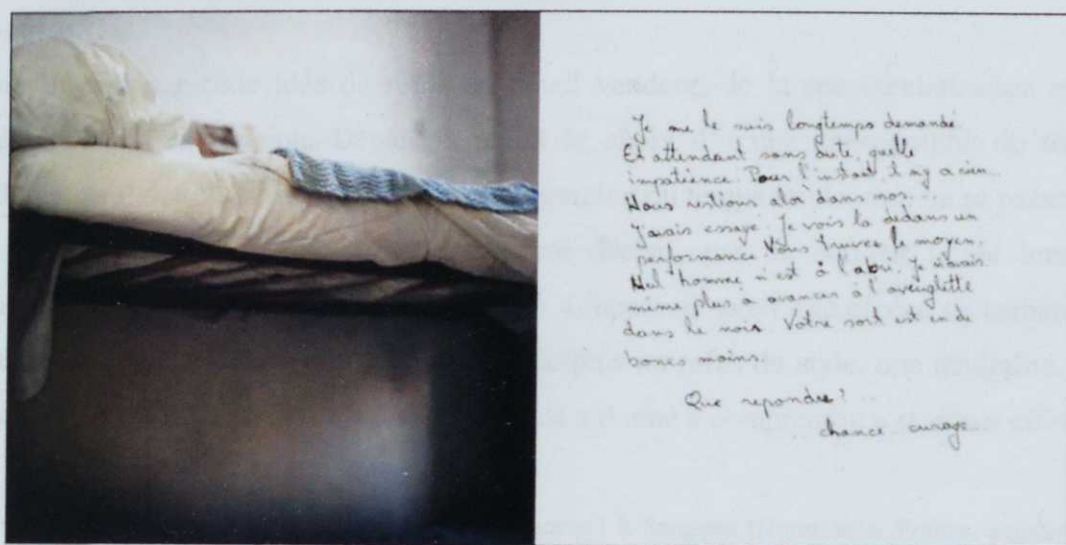 Je me le suis longtemps demandé
Et attendant sans dute, quelle
impatience. Pour l'instant il ny a rien...
Nous restions alor dans nos.
J'avais essayé. Je vois la dedans un
performance. Vous truivez le moyen.
Nul homme n'est à l'abri. Je n'avais
même plus à avancer à l'aveuglette
dans le noir. Votre sort est en de
bones mains.
Que repondre?
chance curage